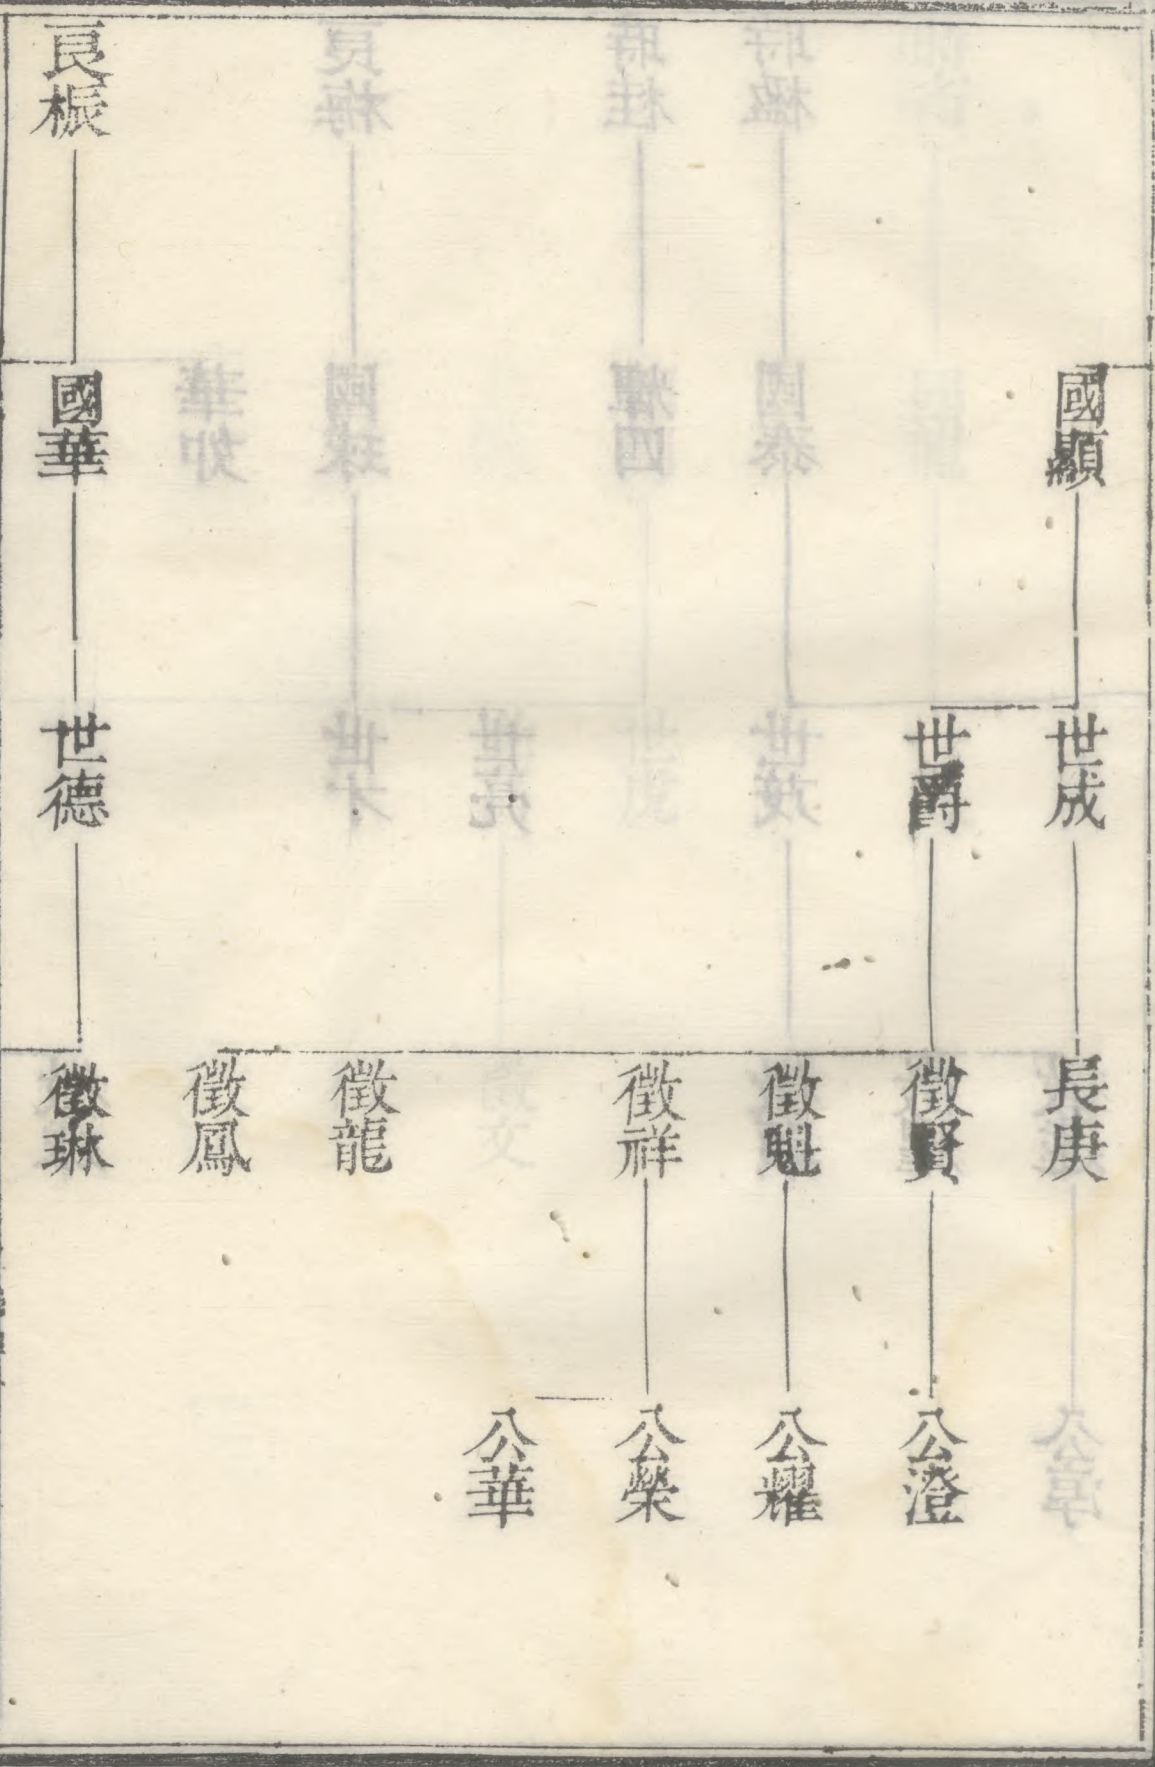 國顯
世成
長庚
世爵
徵賢
公澄
徵魁
公耀
徵祥
公榮
公華
徵龍
徵鳳
良桭
國華
世德
徵琳